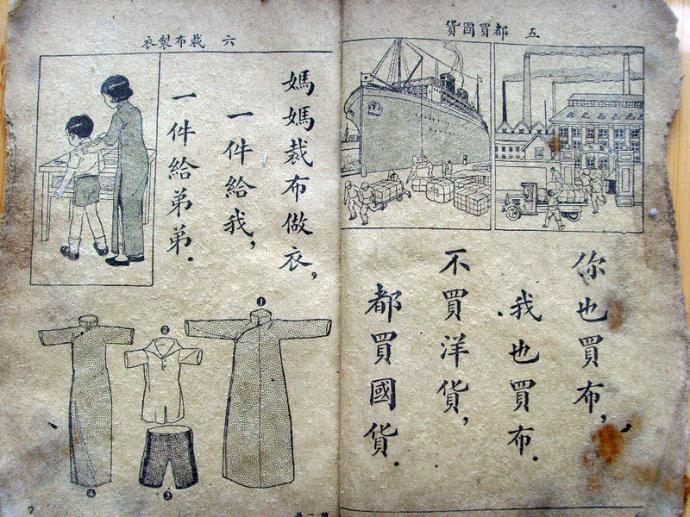 五 都買國貨
你也買布,
我也買布.
不買洋貨,
都買國貨.
六 裁布製衣
媽媽裁布做衣,
一件給我,
一件給弟弟.
1
2
3
4